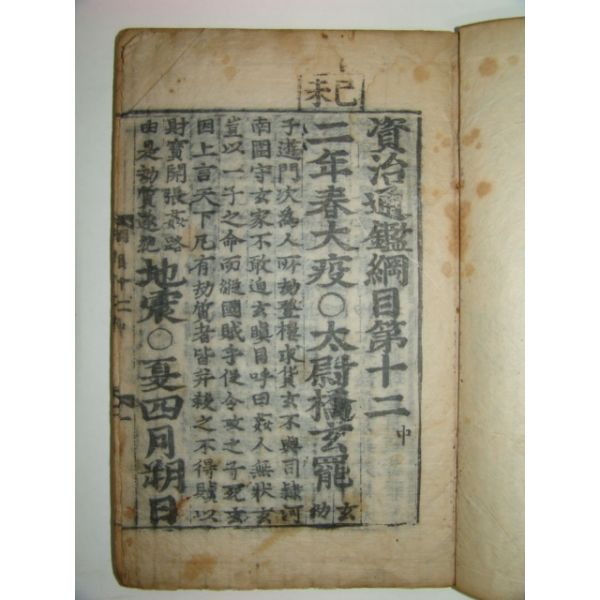 己未
資治通鑑綱目第十二 中
二年春大疫○太尉橋玄罷玄幼
子遊門次為人所劫登樓求貨玄不與司隸河
南圍守玄家不敢迫玄瞋目呼曰姦人無狀玄
豈以一子之命而縱國賊乎促令攻之子死玄
因上言天下凡有劫質者皆并殺之不得贖以
財寶開張姦路
由是劫質遂絕
地震○夏四月朔日